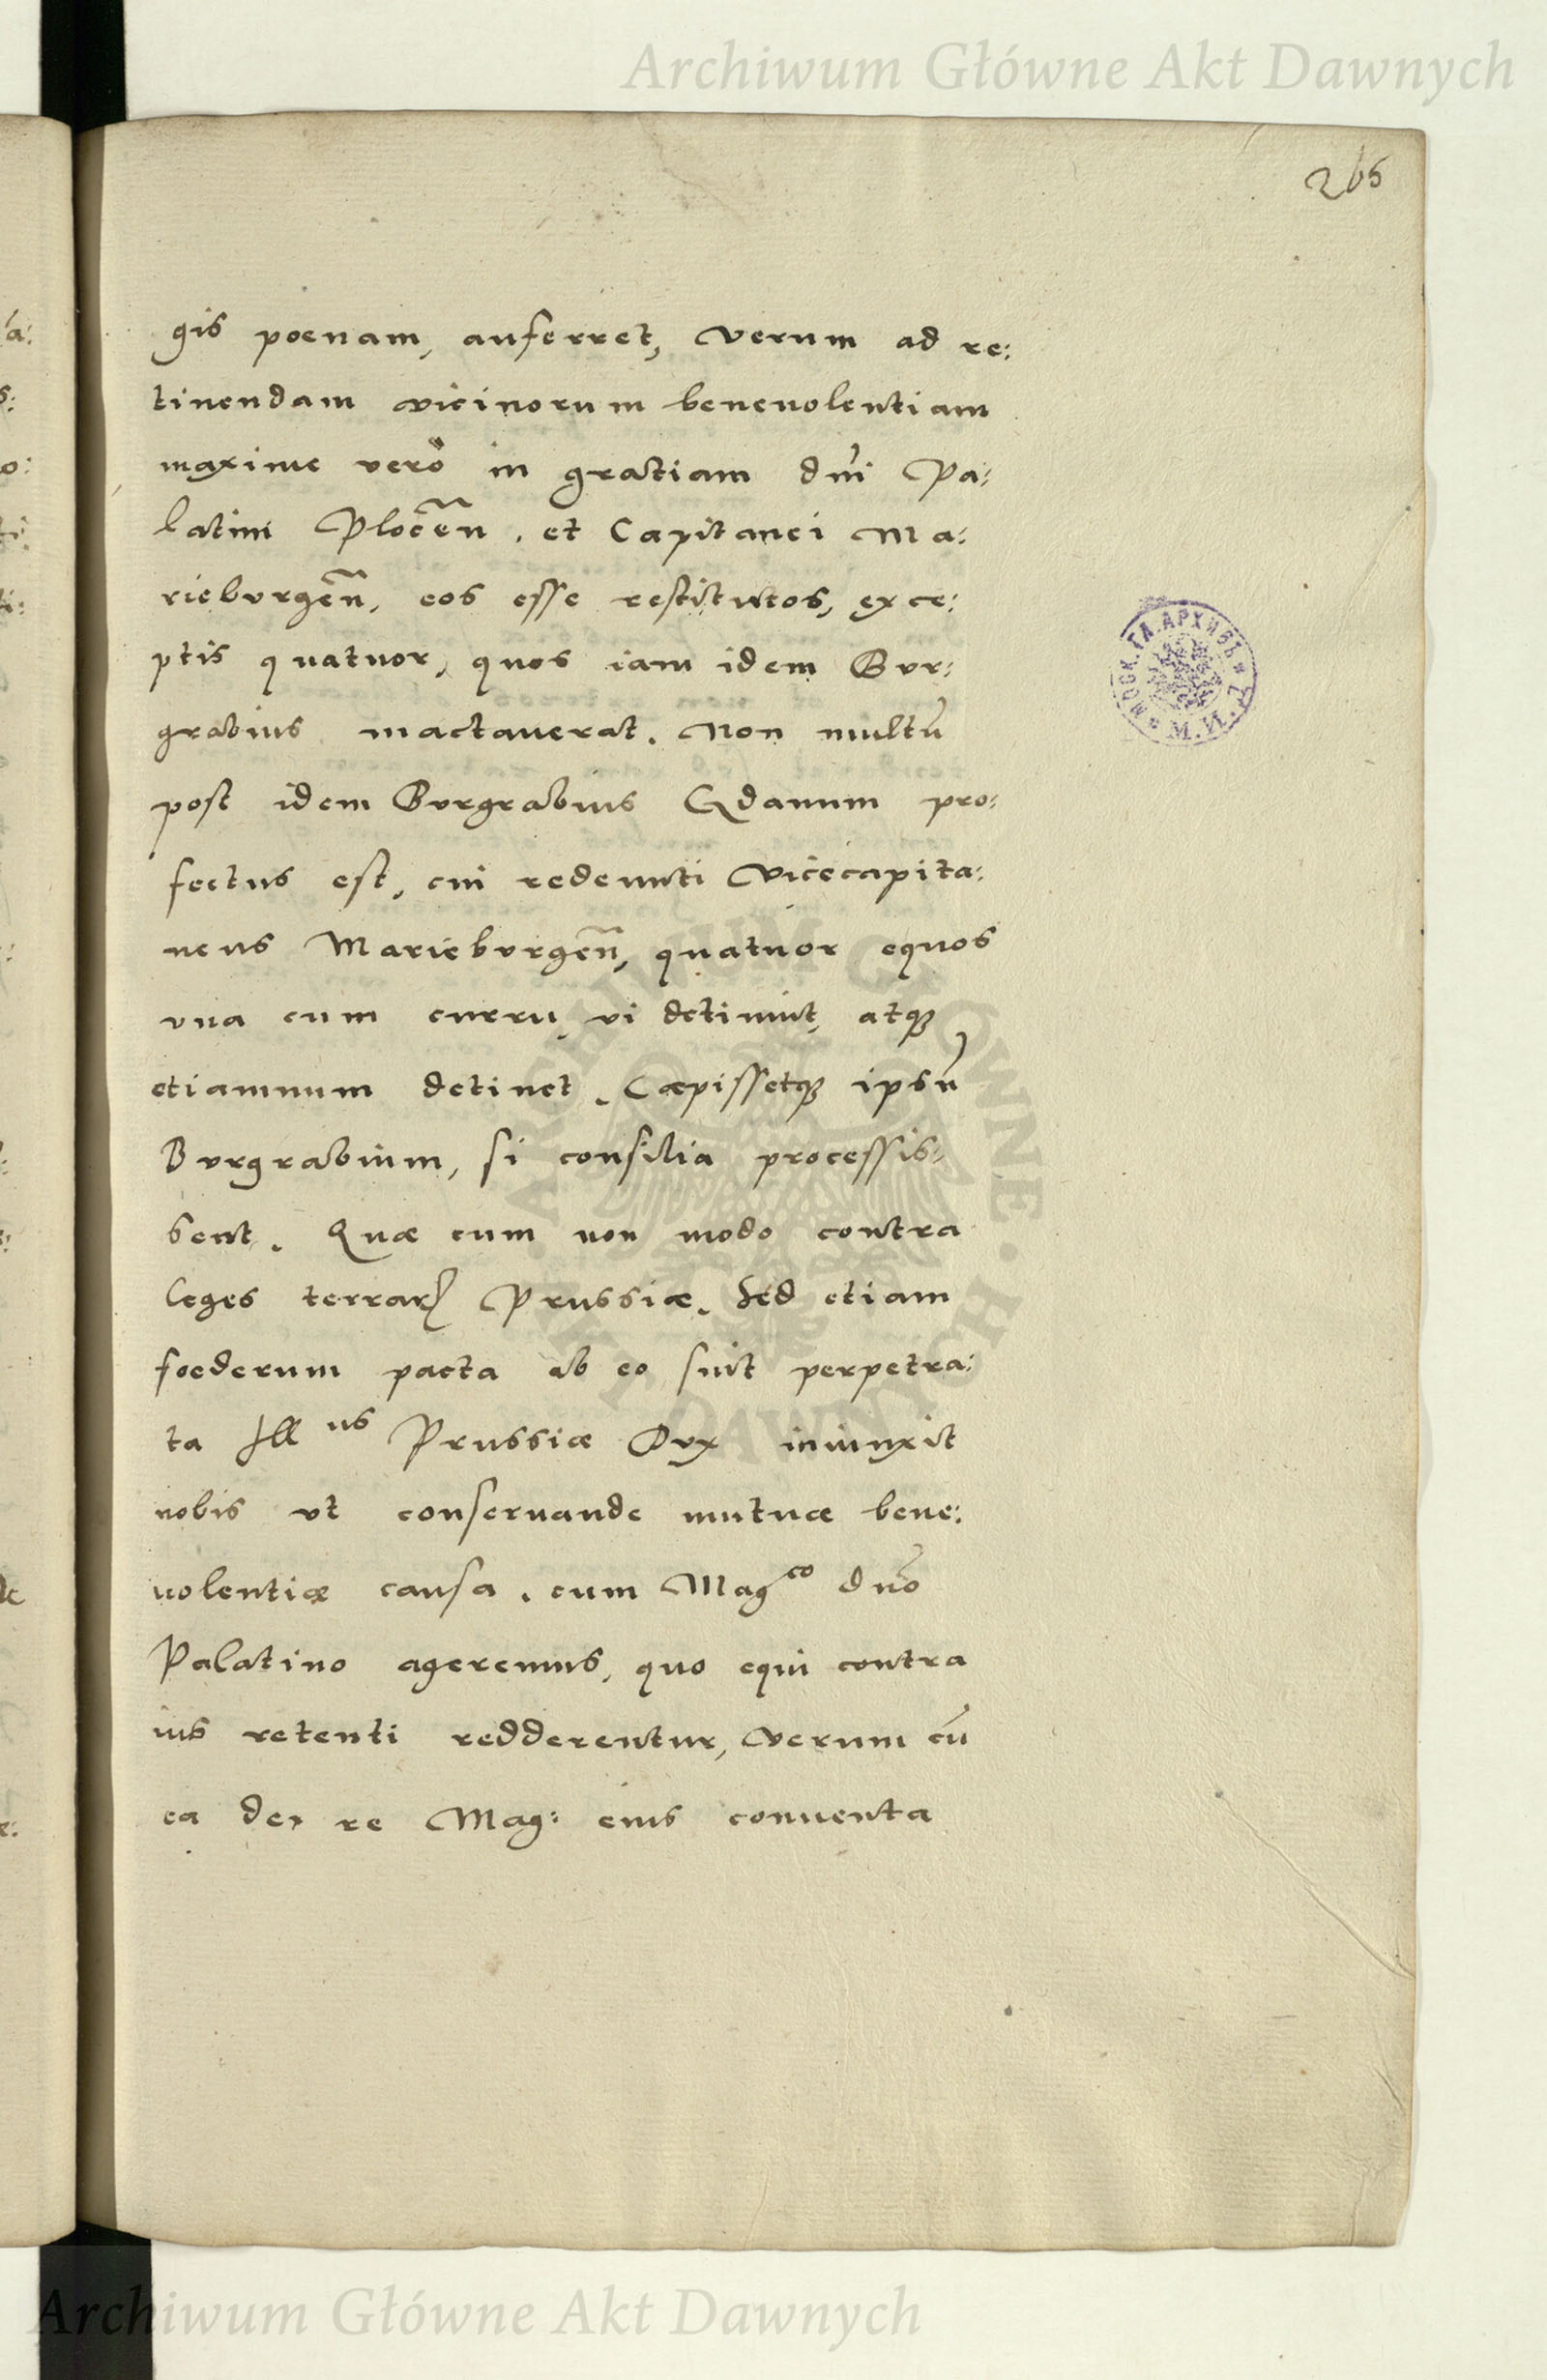 Archiwum Główne Akt Dawnych
265
gis poenam, auferret, verum ad re:
tinendam vicinorum beneuolentiam
maxime verò in gratiam dni Pa:
latini Plocen̄. et Capitanei Ma:
rieburgen̄, eos esse restitutos, exce:
ptis quatuor, quos iam idem Bur:
grabius mactauerat. Non multū
post idem Burgrabius Gdanum pro:
fectus est, cui redeunti Vicecapita:
neus Marieburgen̄, quatuor equos
vna cum curru vi detinuit, atq3
etiamnum detinet. Cæpissetq3 ipsū
Burgrabium, si consilia processis:
sent. Quæ cum non modo contra
leges terrarꝝ Prussiæ. Sed etiam
foederum pacta ab eo sint perpetra:
ta Ill us Prussiæ Dux iniunxit
nobis vt conseruande mutuæ bene:
uolentiæ causa. cum Mag co dno
Palatino ageremus, quo equi contra
ius retenti redderentur, verum cū
ea de re Mag: eius conuenta
МОСК. ГЛ. АРХИВЪ М. И. Д.
ARCHIWUM GŁÓWNE AKT DAWNYCH
Archiwum Główne Akt Dawnych